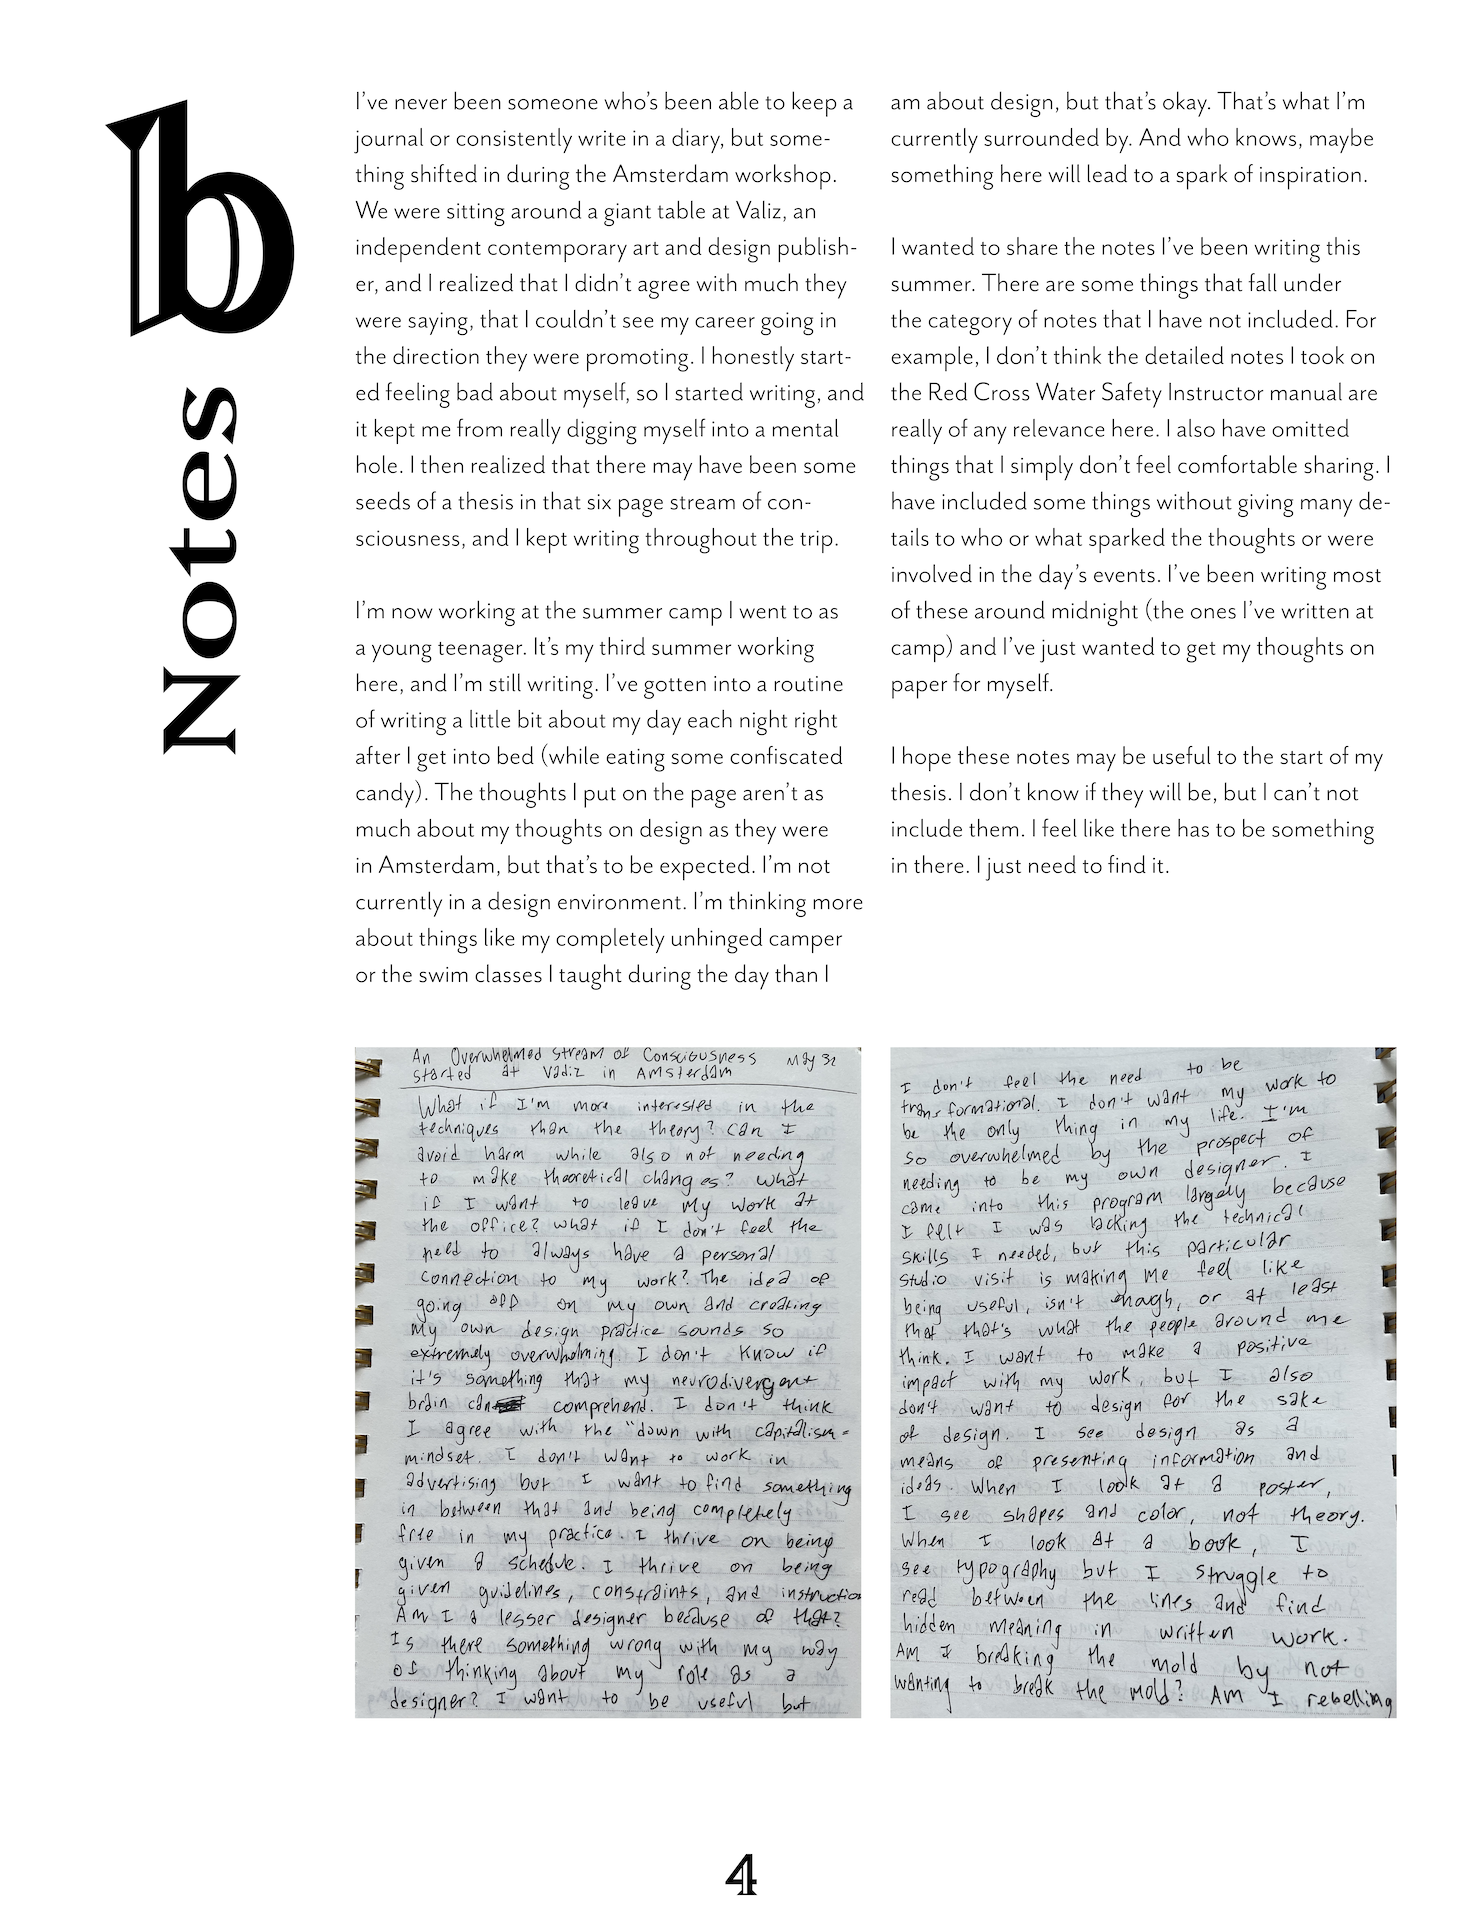 b
Notes
I've never been someone who's been able to keep a
journal or consistently write in a diary, but some-
thing shifted in during the Amsterdam workshop.
We were sitting around a giant table at Valiz, an
independent contemporary art and design publish-
er, and I realized that I didn't agree with much they
were saying, that I couldn't see my career going in
the direction they were promoting. I honestly start-
ed feeling bad about myself, so I started writing, and
it kept me from really digging myself into a mental
hole. I then realized that there may have been some
seeds of a thesis in that six page stream of con-
sciousness, and I kept writing throughout the trip.
I'm now working at the summer camp I went to as
a young teenager. It's my third summer working
here, and I'm still writing. I've gotten into a routine
of writing a little bit about my day each night right
after I get into bed (while eating some confiscated
candy). The thoughts I put on the page aren't as
much about my thoughts on design as they were
in Amsterdam, but that's to be expected. I'm not
currently in a design environment. I'm thinking more
about things like my completely unhinged camper
or the swim classes I taught during the day than I
am about design, but that's okay. That's what I'm
currently surrounded by. And who knows, maybe
something here will lead to a spark of inspiration.
I wanted to share the notes I've been writing this
summer. There are some things that fall under
the category of notes that I have not included. For
example, I don't think the detailed notes I took on
the Red Cross Water Safety Instructor manual are
really of any relevance here. I also have omitted
things that I simply don't feel comfortable sharing. I
have included some things without giving many de-
tails to who or what sparked the thoughts or were
involved in the day's events. I've been writing most
of these around midnight (the ones I've written at
camp) and I've just wanted to get my thoughts on
paper for myself.
I hope these notes may be useful to the start of my
thesis. I don't know if they will be, but I can't not
include them. I feel like there has to be something
in there. I just need to find it.
An Overwhelmed Stream of Consciousness May 31
started at Valiz in Amsterdam
What if I'm more interested in the
techniques than the theory? Can I
avoid harm while also not needing
to make theoretical changes? What
if I want to leave my work at
the office? What if I don't feel the
need to always have a personal
connection to my work? The idea of
going off on my own and creating
my own design practice sounds so
extremely overwhelming. I don't know if
it's something that my neurodivergent
brain can comprehend. I don't think
I agree with the "down with capitalism"
mindset. I don't want to work in
advertising but I want to find something
in between that and being completely
free in my practice. I thrive on being
given a schedule. I thrive on being
given guidelines, constraints, and instruction
Am I a lesser designer because of that?
Is there something wrong with my way
of thinking about my role as a
designer? I want to be useful but
I don't feel the need to be
transformational. I don't want my work to
be the only thing in my life. I'm
so overwhelmed by the prospect of
needing to be my own designer. I
came into this program largely because
I felt I was lacking the technical
skills I needed, but this particular
studio visit is making me feel like
being useful, isn't enough, or at least
that that's what the people around me
think. I want to make a positive
impact with my work, but I also
don't want to design for the sake
of design. I see design as a
means of presenting information and
ideas. When I look at a poster,
I see shapes and color, not theory.
When I look at a book, I
see typography but I struggle to
read between the lines and find
hidden meaning in written work.
Am I breaking the mold by not
wanting to break the mold? Am I rebelling
4